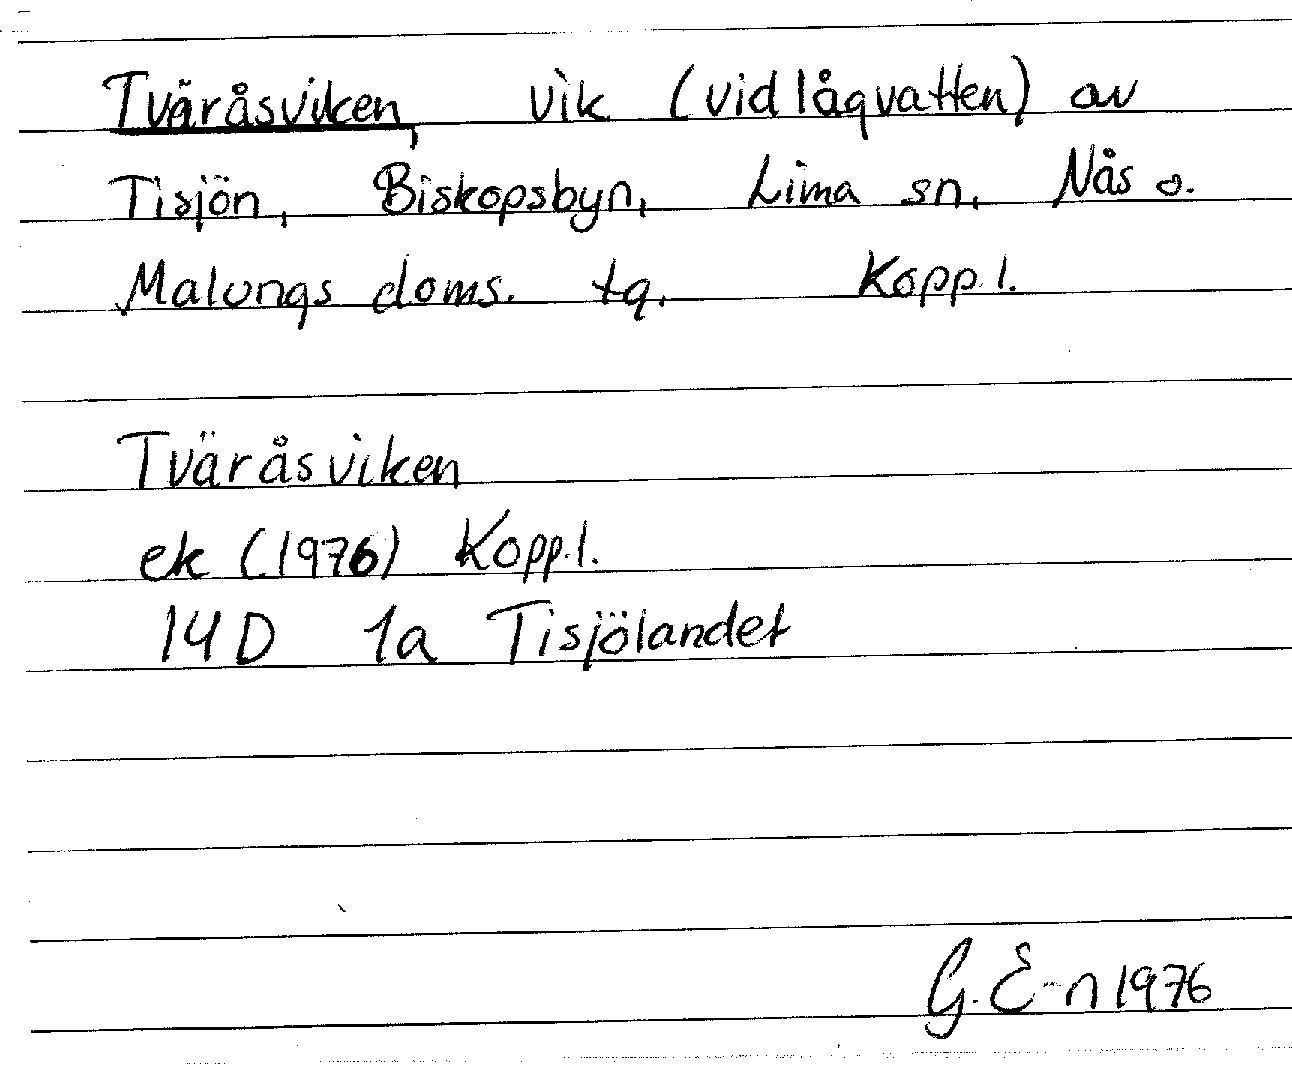 Tväråsviken, vik (vid lågvatten) av
Tisjön, Biskopsbyn, Lima sn, Nås o.
Malungs doms. tg. Kopp.l.
Tväråsviken
ek (1976) Kopp.l.
14D 1a Tisjölandet
G. E-n 1976